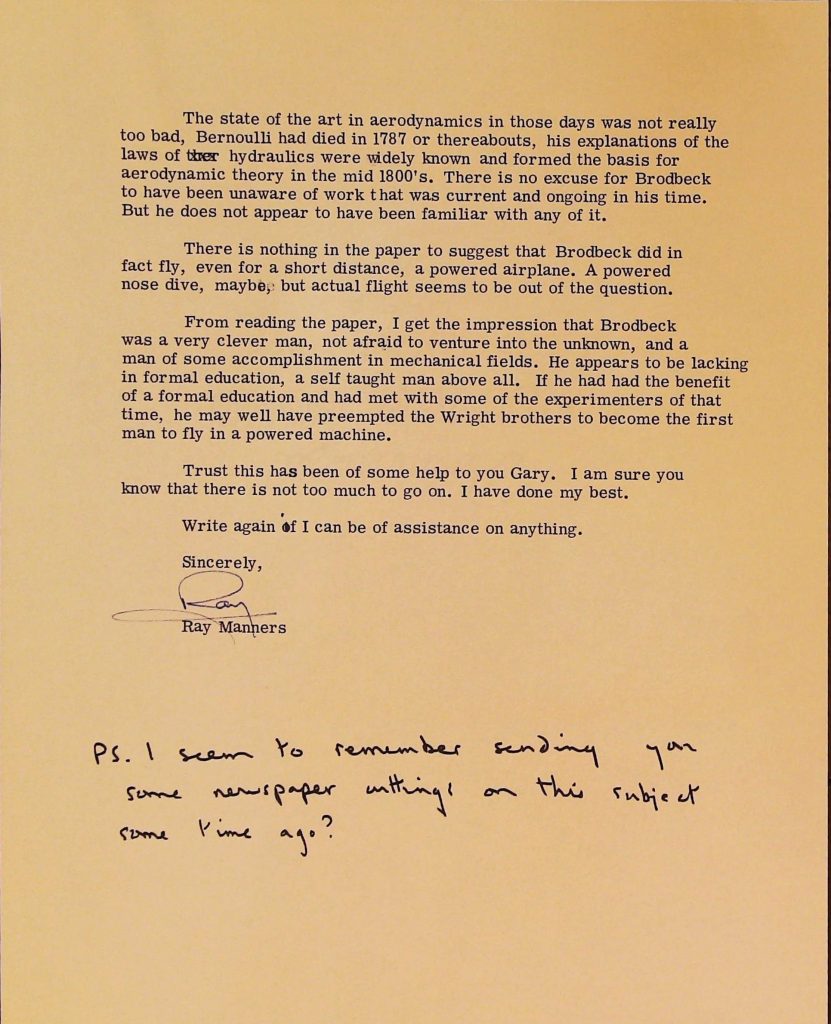 The state of the art in aerodynamics in those days was not really
too bad, Bernoulli had died in 1787 or thereabouts, his explanations of the
laws of hydraulics were widely known and formed the basis for
aerodynamic theory in the mid 1800's. There is no excuse for Brodbeck
to have been unaware of work that was current and ongoing in his time.
But he does not appear to have been familiar with any of it.
There is nothing in the paper to suggest that Brodbeck did in
fact fly, even for a short distance, a powered airplane. A powered
nose dive, maybe, but actual flight seems to be out of the question.
From reading the paper, I get the impression that Brodbeck
was a very clever man, not afraid to venture into the unknown, and a
man of some accomplishment in mechanical fields. He appears to be lacking
in formal education, a self taught man above all. If he had had the benefit
of a formal education and had met with some of the experimenters of that
time, he may well have preempted the Wright brothers to become the first
man to fly in a powered machine.
Trust this has been of some help to you Gary. I am sure you
know that there is not too much to go on. I have done my best.
Write again if I can be of assistance on anything.
Sincerely,
Ray
Ray Manners
PS. I seem to remember sending you
some newspaper cuttings on this subject
some time ago?